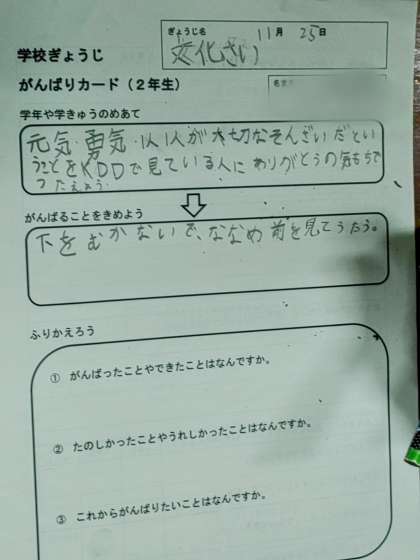 ぎょうじ名 11月 25日
学校ぎょうじ 文化さい
がんばりカード（２年生）
学年や学きゅうのめあて
元気・勇気・1人1人が大切なそんざいだとい
うことをKDDで見ている人にありがとうの気もちで
つたえよう。
がんばることをきめよう
下をむかないで、ななめ前を見てうたう。
ふりかえろう
① がんばったことやできたことはなんですか。
② たのしかったことやうれしかったことはなんですか。
③ これからがんばりたいことはなんですか。